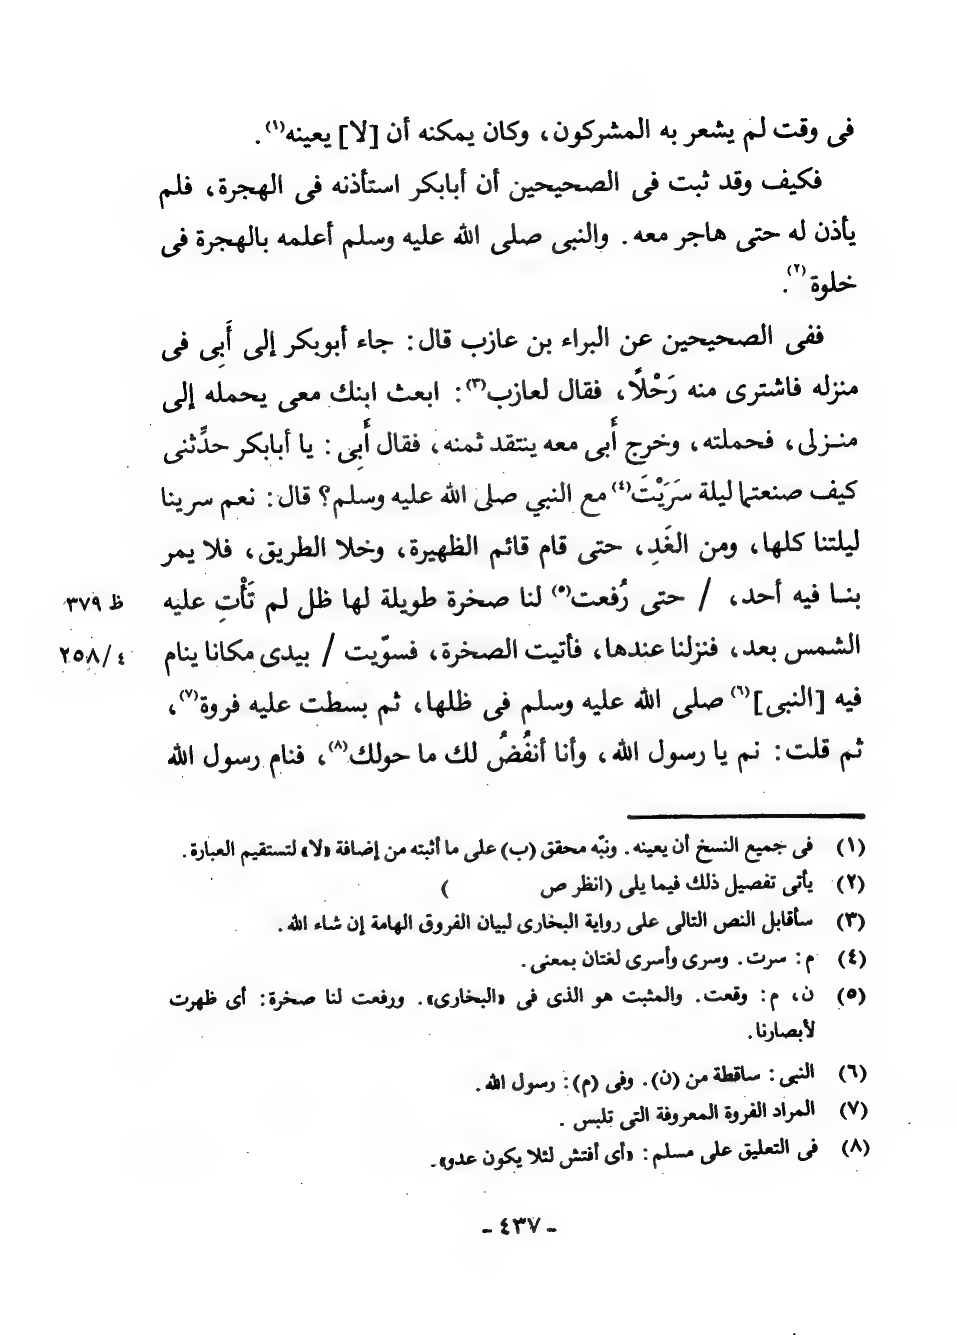 فى وقت لم يشعر به المشركون، وكان يمكنه أن [لا] يعينه(١).
فكيف وقد ثبت فى الصحيحين أن أبابكر استأذنه فى الهجرة، فلم
يأذن له حتى هاجر معه. والنبى صلى الله عليه وسلم أعلمه بالهجرة فى
خلوة(٢).
ففى الصحيحين عن البراء بن عازب قال: جاء أبوبكر إلى أَبِى فى
منزله فاشترى منه رَحْلًا، فقال لعازب(٣): ابعث ابنك معى يحمله إلى
منـزلى، فحملته، وخرج أَبى معه ينتقد ثمنه، فقال أَبِى: يا أبابكر حدِّثنى
كيف صنعتما ليلة سَرَيْتَ(٤) مع النبي صلى الله عليه وسلم؟ قال: نعم سرينا
ليلتنا كلها، ومن الغَدِ، حتى قام قائم الظهيرة، وخلا الطريق، فلا يمر
بنـا فيه أحد، / حتى رُفعت(٥) لنا صخرة طويلة لها ظل لم تَأْتِ عليه ظ ٣٧٩
الشمس بعد، فنزلنا عندها، فأتيت الصخرة، فسوّيت / بيدى مكانا ينام ٤/ ٢٥٨
فيه [النبى](٦) صلى الله عليه وسلم فى ظلها، ثم بسطت عليه فروة(٧)،
ثم قلت: نم يا رسول الله، وأنا أنفُضُ لك ما حولك(٨)، فنام رسول الله
(١) فى جميع النسخ أن يعينه. ونبّه محقق (ب) على ما أثبته من إضافة «لا» لتستقيم العبارة.
(٢) يأتى تفصيل ذلك فيما يلى (انظر ص )
(٣) سأقابل النص التالى على رواية البخارى لبيان الفروق الهامة إن شاء الله.
(٤) م: سرت. وسرى وأسرى لغتان بمعنى.
(٥) ن، م: وقعت. والمثبت هو الذى فى «البخارى». ورفعت لنا صخرة: أى ظهرت
لأبصارنا.
(٦) النبى: ساقطة من (ن). وفى (م): رسول الله.
(٧) المراد الفروة المعروفة التى تلبس.
(٨) فى التعليق على مسلم: «أى أفتش لئلا يكون عدو».
- ٤٣٧ -